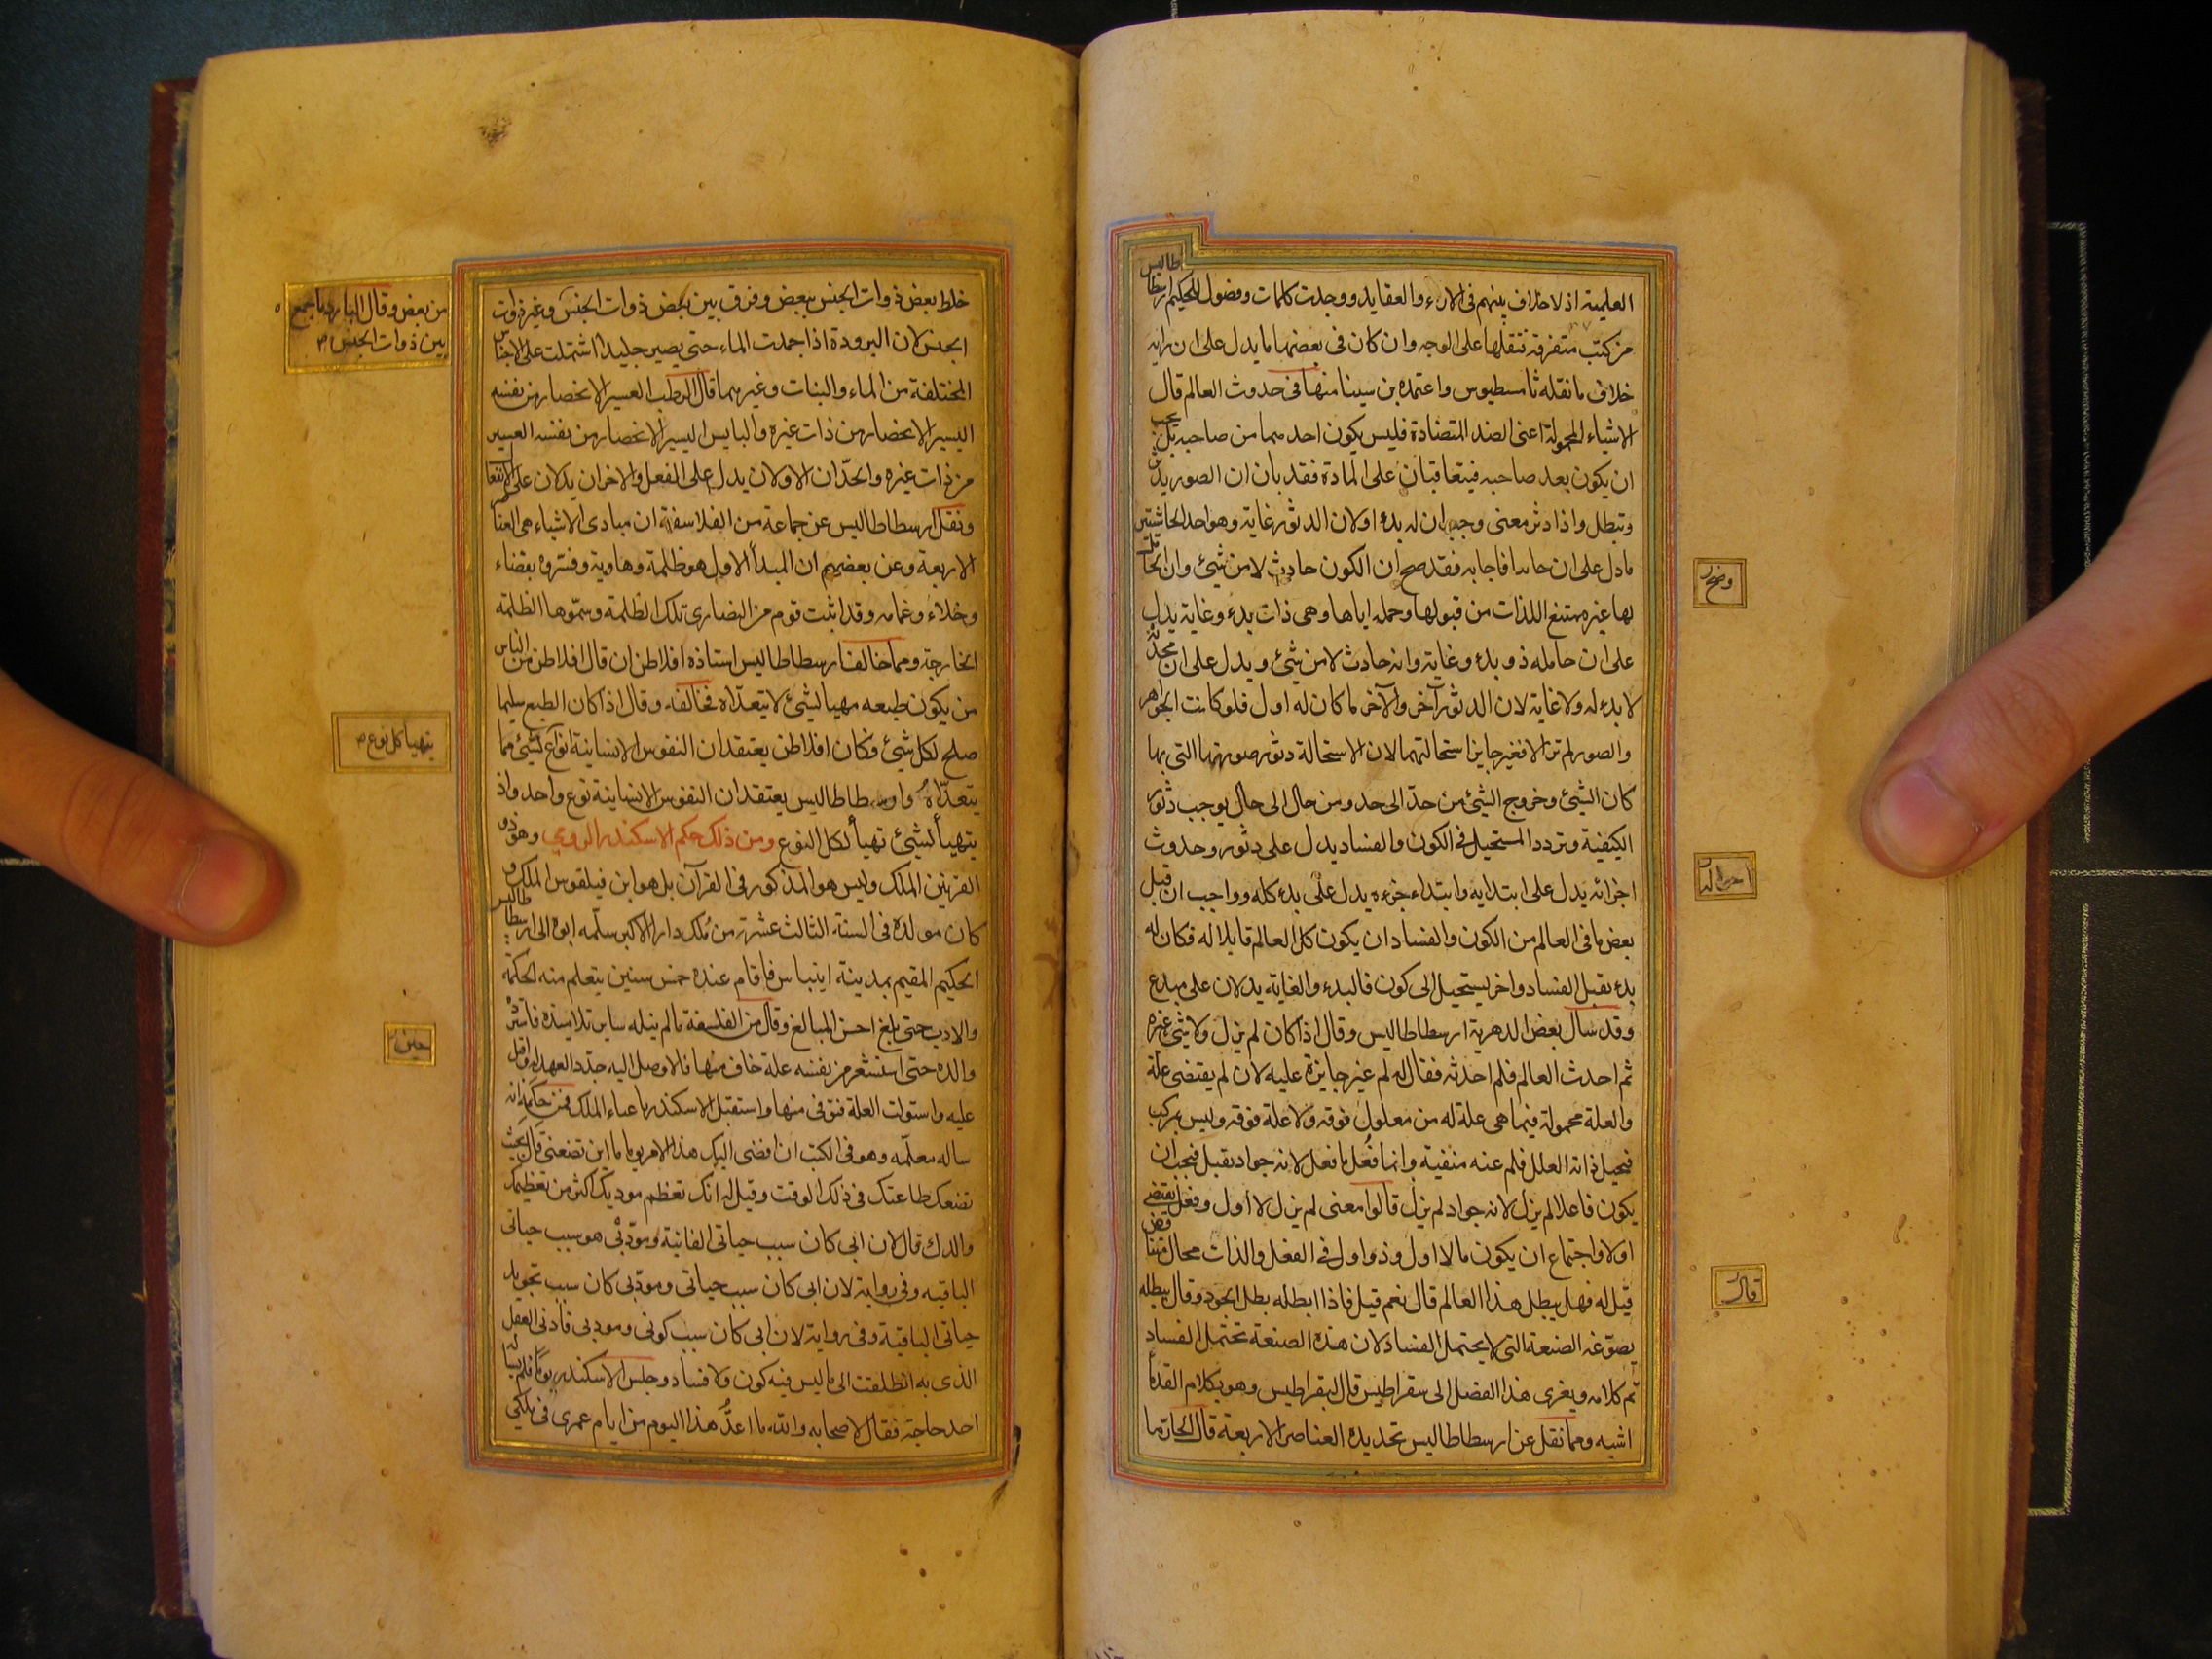 العلمية اذ لا خلاف بينهم فى الاراء والعقايد ووجدت كلمات وفصول للحكيم ارسطاطاليس
من كتب متفرقة فنقلتها على الوجه وان كان فى بعضها ما يدل على ان رايه
خلاف ما نقله ثامسطيوس واعتمده بن سينا منها فى حدوث العالم قال
الاشياء المحمولة اعنى الصند المتضادة فليس يكون احدهما من صاحبه بل يجب
ان يكون بعد صاحبه فيتعاقبان على المادة فقد بان ان الصور يدثر
وتبطل واذا دثر معنى وجب ان له بدء اولان الدثور غاية وهو احد الحاشيتين
ما دل على ان جابيا جابه فقد صح ان الكون حادث لا من شيئ وان الحامل
لها غير ممتنع اللذات من قبولها وحمله اياها وهى ذات بدء وغاية يدل
على ان حامله ذو بدء وغاية وانه حادث لا من شيئ ويدل على ان محدثه
لا بدء له ولا غاية لان الدثور آخر والآخر ما كان له اول فلو كانت الجواهر
والصور لم تزالا فغير جايز استحالتهما لان الاستحالة دثور صورتهما التى بها
كان الشيئ وخروج الشيئ من حد الى حد ومن حال الى حال يوجب دثور
الكيفية وتردد المستحيل فى الكون والفساد يدل على دثوره وحدوث
اجزائه يدل على ابتدايه وابتداء جزءه يدل على بدء كله وواجب ان قبل
بعض ما فى العالم من الكون والفساد ان يكون كل العالم قابلا له فكان له
بدء يقبل الفساد واخر يستحيل الى كون فالبدء والغاية يدلان على مبدع
وقد سأل بعض الدهرية ارسطاطاليس وقال اذا كان لم يزل ولا شيئ غيره
ثم احدث العالم فلم احدثه فقال له لم غير جايزة عليه لان لم يقتضى علة
والعلة محمولة فيما هى علة له من معلول فوقه ولا علة فوقه وليس بمركب
فيحيل ذاته العلل فلم عنه منفية وانما فعل ما فعل لانه جواد يقبل فيجب ان
يكون فاعلا لم يزل لانه جواد لم يزل قالوا معنى لم يزل لا أول وفعل يقتضى
اولا واجتماع ان يكون ما لا اول وذو اول فى الفعل والذات محال متناقض
قيل له فهل يبطل هذا العالم قال نعم قيل فاذا ابطله بطل الجود وقال يبطله
يصوغه الصنعة التى لا يحتمل الفساد لان هذه الصنعة تحتمل الفساد
تم كلامه ويعزى هذا الفصل الى سقراطيس قال لبقراطيس وهو بكلام القدما
اشبه ومما نقل عن ارسطاطاليس تحديده العناصر الاربعة قال الحار ما
وضح
احواله
قال
خلط بعض ذوات الجنس ببعض وفرق بين بعض ذوات الجنس وغير ذوات
الجنس لان البرودة اذا جمدت الماء حتى يصير جليدا اشتملت على الاجناس
المختلفة من الماء والنبات وغيرهما قال الرطب العسير الانحصار من نفسه
اليسير الانحصار من ذات غيره واليابس اليسير الانحصار من نفسه العسير
من ذات غيره والحدان الاولان يدل على الفعل والاخران يدلان على الانفعال
ونقل ارسطاطاليس عن جماعة من الفلاسفة ان مبادى الاشياء هى العناصر
الاربعة وعن بعضهم ان المبدأ الاول هو ظلمة وهاوية وفسروه بفضاء
وخلاء وعمامه وقد اثبت قوم من النصارى تلك الظلمة وسموها الظلمة
الخارجة ومما خالف ارسطاطاليس استاذه افلاطن ان قال افلاطن من الناس
من يكون طبعه مهيا لشيئ لا يتعداه فخالفه وقال اذا كان الطبع سليما
صلح لكل شيئ وكان افلاطن يعتقد ان النفوس الانسانية انواع لشيئ مما
يتعداه وارسطاطاليس يعتقد ان النفوس الانسانية نوع واحد واذ
يتهيأ لشيئ تهيأ لكل النوع ومن ذلك حكم الاسكندر الرومى وهو ذو
القرنين الملك وليس هو المذكور فى القرآن بل هو ابن فيلقوس الملك و
كان مولده فى السنة الثالث عشرة من ملك دارا الاكبر سلمه ابوه الى ارسطاطاليس
الحكيم المقيم بمدينة اينياس فاقام عنده خمس سنين يتعلم منه الحكمة
والادب حتى بلغ احسن المبالغ وقال من الفلسفة ما لم ينله ساير تلامذه فاستر
والده حتى استشعر من نفسه علة خاف منها فلما وصل اليه جدد العهد له واقبل
عليه واستولت العلة فتوفى منها واستقبل الاسكندر باعباء الملك فمن حكمه انه
ساله معلمه وهو فى الكتب ان افضى اليك هذا الامر يوما ما اين تضعنى قال بحيث
تضعك طاعتك فى ذلك الوقت وقيل له انك تعظم موديك اكثر من تعظيمك
والدك قال لان ابى كان سبب حياتى الفانية ومودبى هو سبب حياتى
الباقيه وفى رواية لان ابى كان سبب حياتى ومودبى كان سبب تجويد
حياتى الباقية وفى رواية لان ابى كان سبب كونى ومودبى فادنى العقل
الذى به انطلقت الى ما ليس فيه كون ولا فساد وجلس الاسكندر يوما فلم يسأله
احد حاجة فقال لاصحابه والله ما اعد هذا اليوم من ايام عمرى فى ملكى
من بعض وقال البارد ما جمع
بين ذوات الجنس
يتهيا كل نوع
حين